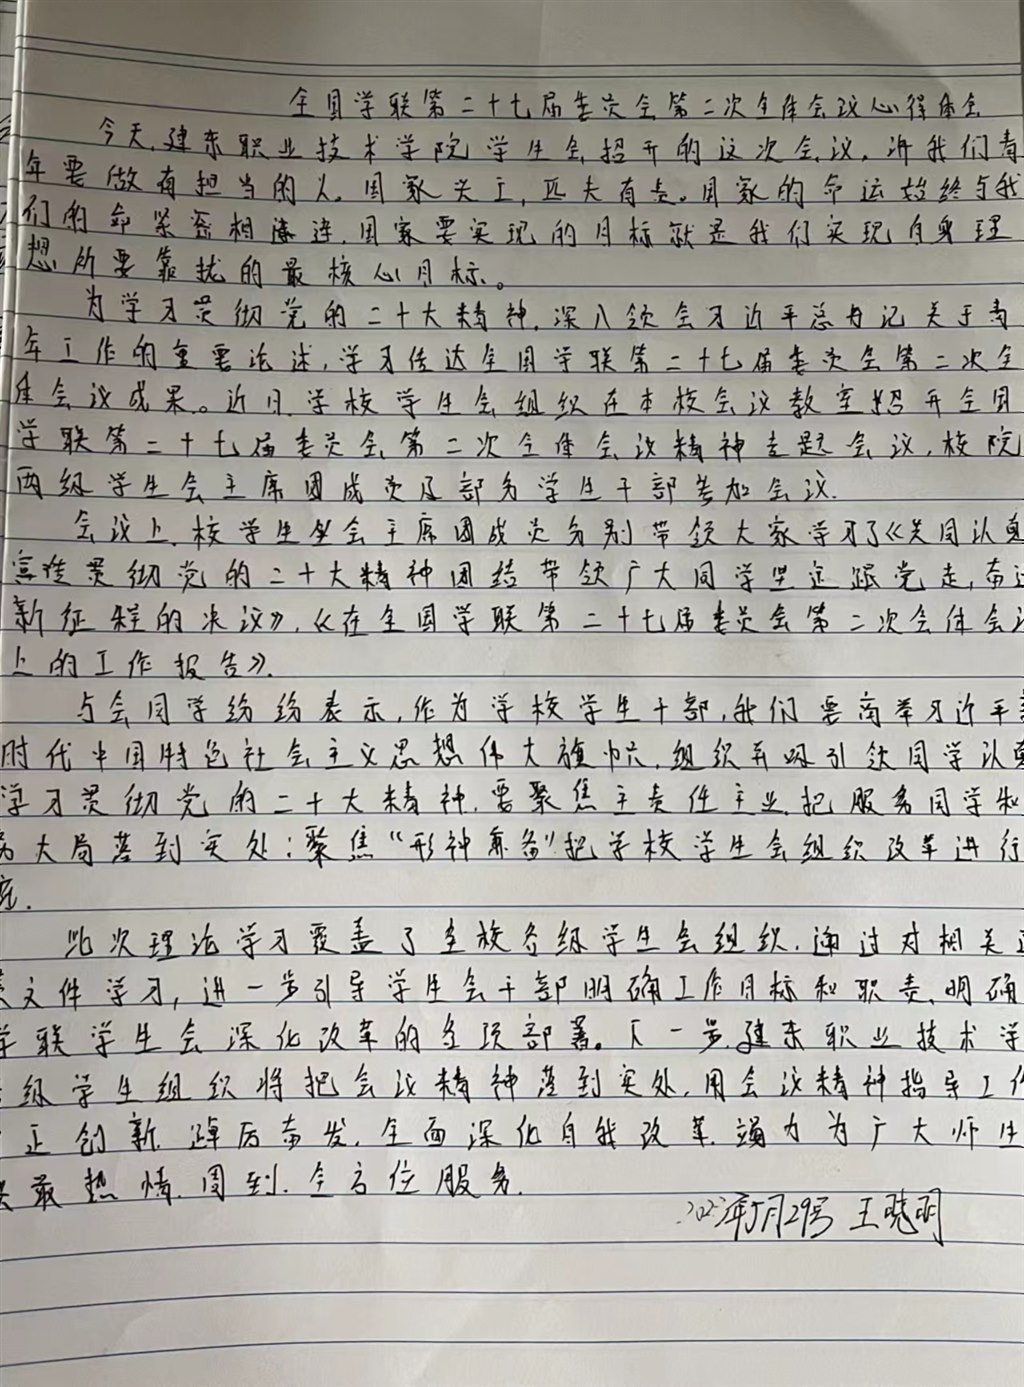 全国学联第二十七届委员会第二次全体会议心得体会
今天,建东职业技术学院学生会招开的这次会议,讲我们青
年要做有担当的人。国家兴亡,匹夫有责。国家的命运始终与我
们的命紧密相连连,国家要实现的目标就是我们实现自身理
想所要靠拢的最核心目标。
为学习贯彻党的二十大精神,深入领会习近平总书记关于青
年工作的重要论述,学习传达全国学联第二十七届委员会第二次全
体会议成果。近日,学校学生会组织在本校会议教室招开全国
学联第二十七届委员会第二次全体会议精神专题会议,校院
两级学生会主席团成员及部分学生干部参加会议.
会议上,校学生会主席团成员分别带领大家学习了《关于认真
宣传贯彻党的二十大精神团结带领广大同学坚定跟党走,奋进
新征程的决议》,《在全国学联第二十七届委员会第二次会体会议
上的工作报告》.
与会同学纷纷表示,作为学校学生干部,我们要高举习近平新
时代中国特色社会主义思想伟大旗帜,组织并吸引领同学认真
学习贯彻党的二十大精神,要聚焦主责任主业,把服务同学和
大局落到实处;聚焦“形神兼备”把学校学生会组织改革进行
底.
此次理论学习覆盖了全校各级学生会组织,通过对相关
文件学习,进一步引导学生会干部明确工作目标和职责,明确
学联学生会深化改革的各项部署。下一步,建东职业技术学
级学生组织将把会议精神落到实处,用会议精神指导工作
正创新,踔厉奋发,全面深化自我改革,竭力为广大师生
最热情,周到,全方位服务.
2023年5月29号 王晓明